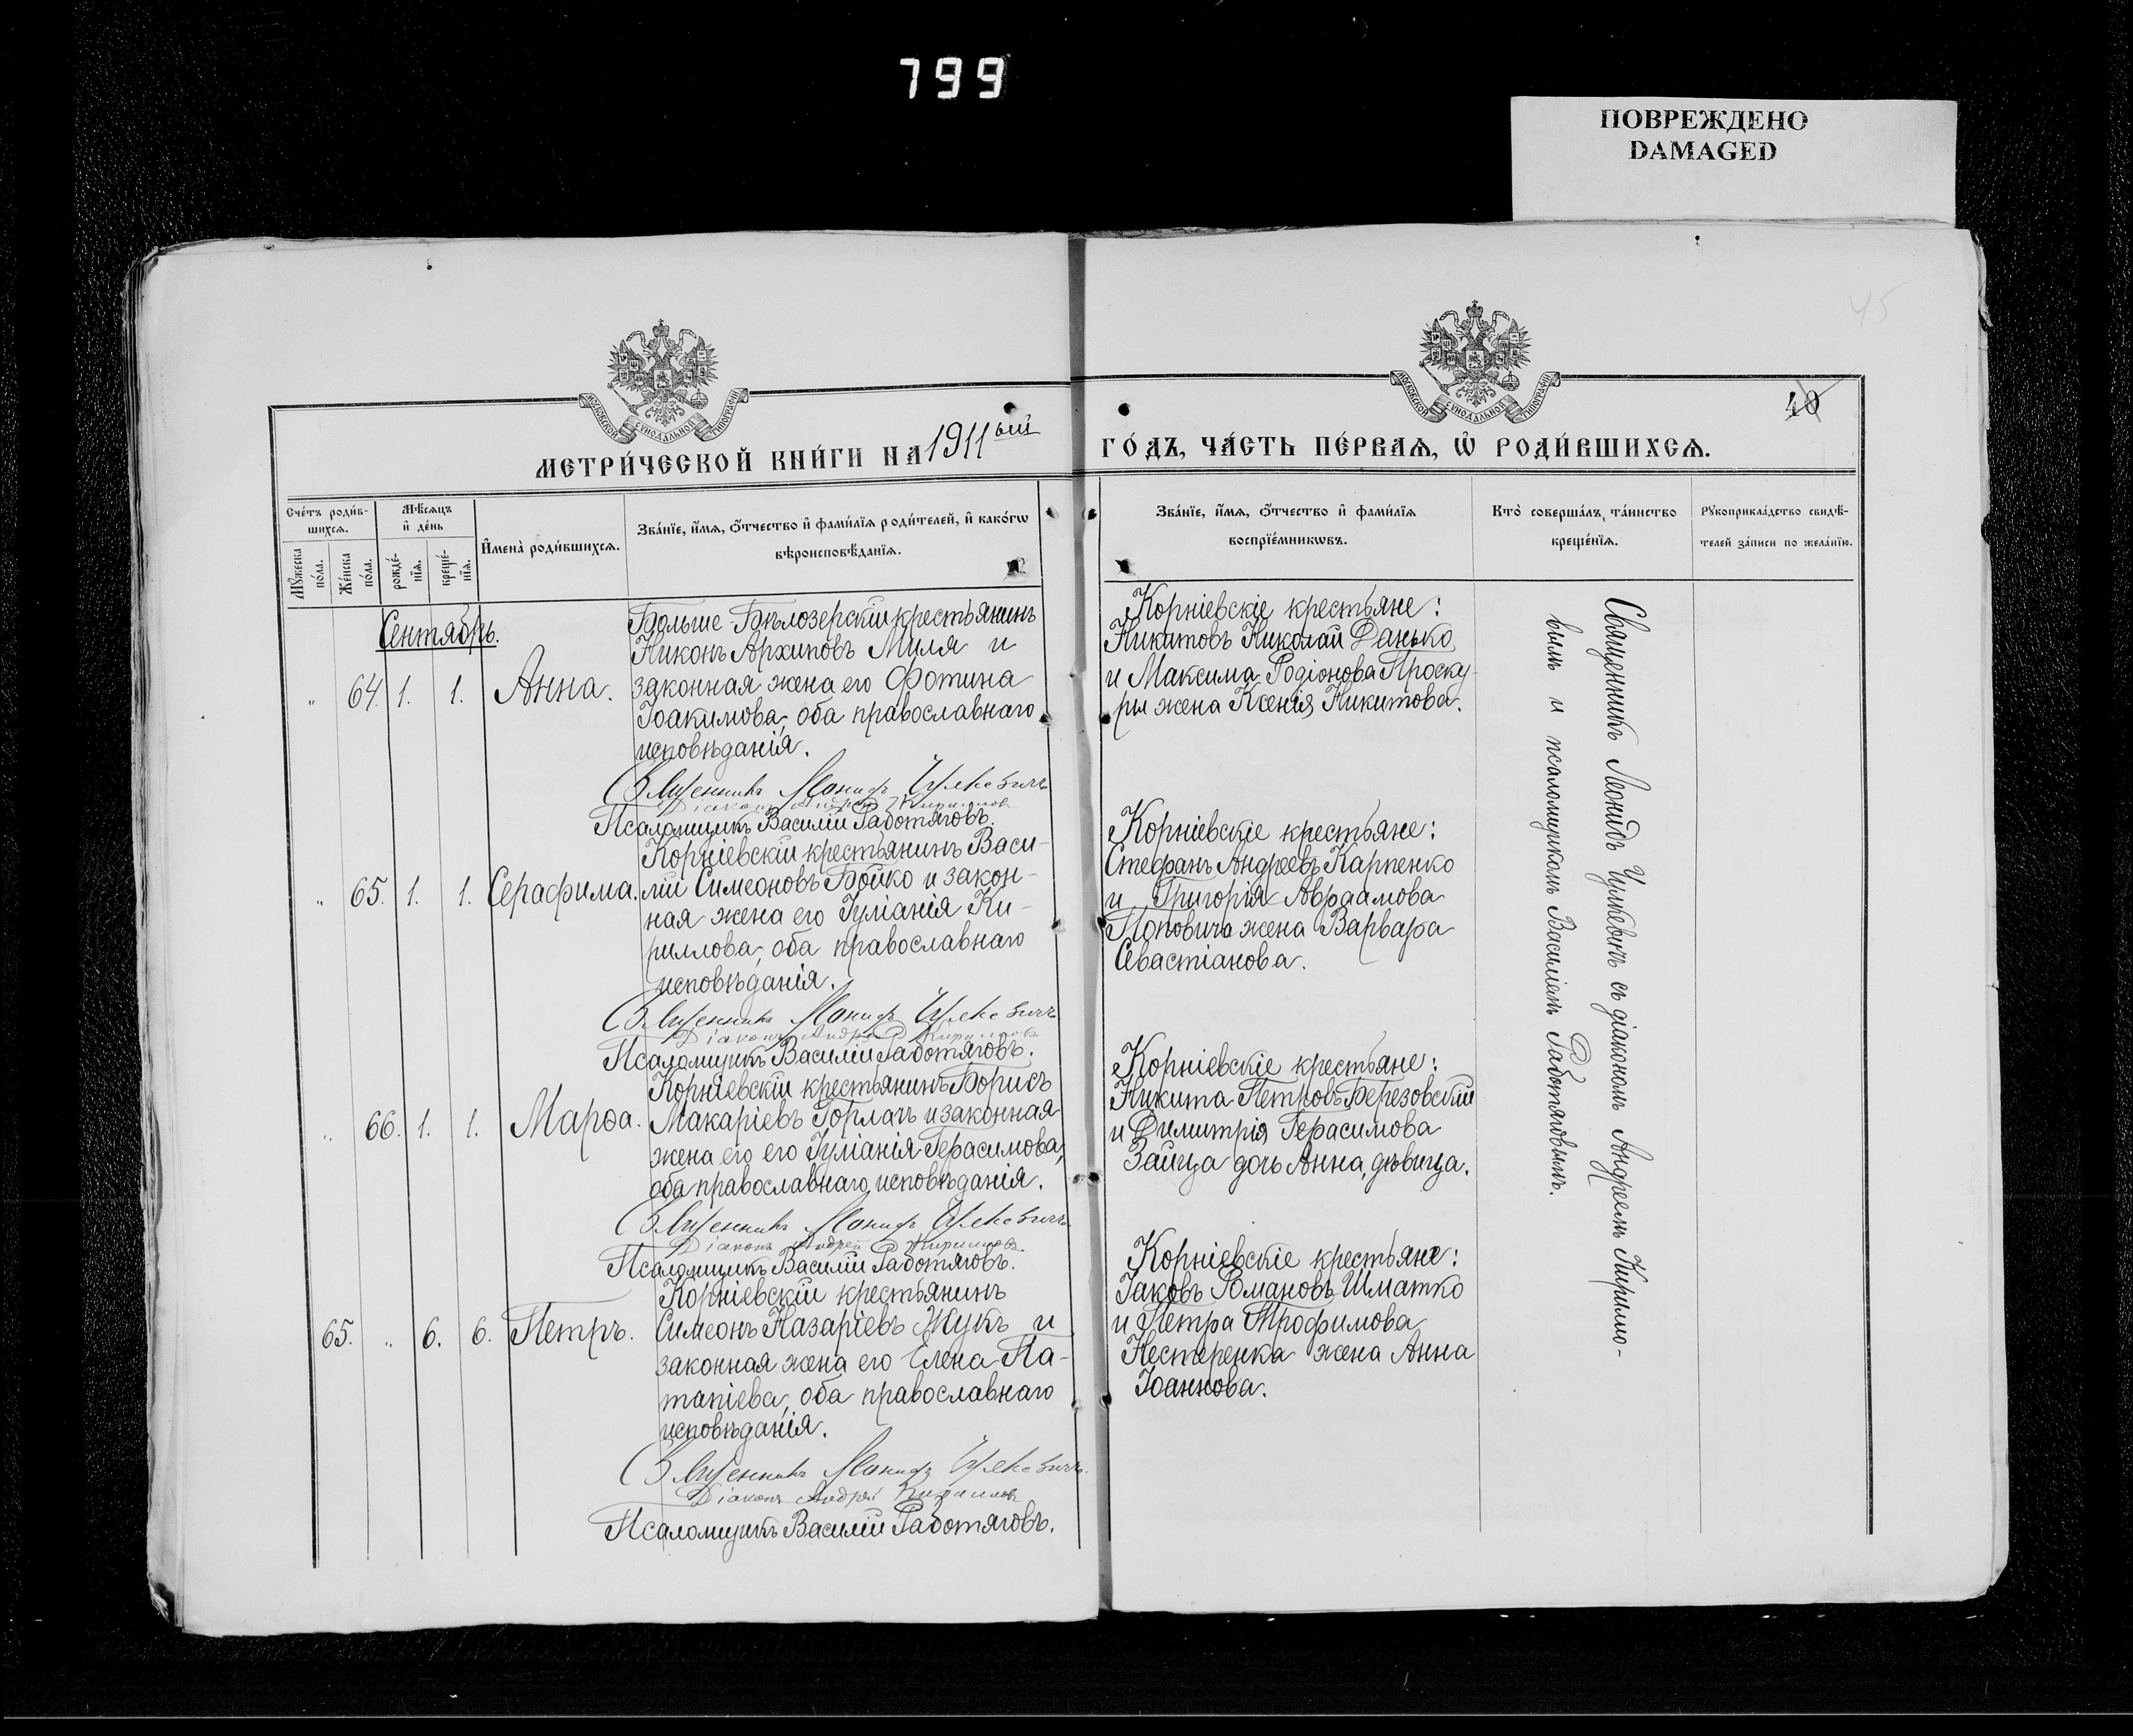 799
ПОВРЕЖДЕНО
DAMAGED
45
40
МОСКОВСКОЙ СѴНОДАЛЬНОЙ ТИПОГРАФІИ
МОСКОВСКОЙ СѴНОДАЛЬНОЙ ТИПОГРАФІИ
МЕТРИ́ЧЕСКОЙ КНИ́ГИ НА 1911ый
ГО́ДЪ, ЧА́СТЬ ПЕ́РВАѦ, Ѽ РОДИ́ВШИХСѦ.
Сче́тъ роди́в-
шихсѧ.
Мꙋжеска по́ла.
Же́нска по́ла.
Мѣ́сѧцъ
и҆ де́нь
рожде́-
нїѧ.
креще́-
нїѧ.
И҆мена̀ роди́вшихсѧ.
Зва́нїе, и҆́мѧ, ѻ҆́тчество и҆ фами́лїѧ роди́телей, и҆ како́гѡ
вѣроисповѣ́данїѧ.
Зва́нїе, и҆́мѧ, ѻ҆́тчество и҆ фами́лїѧ
воспрїе́мникѡвъ.
Кто̀ соверша́лъ та́инство
креще́нїѧ.
Рꙋкоприкла́дство свидѣ́-
телей за́писи по жела́нїю.
Сентябрь.
" 64. 1. 1. Анна.
Больше-Бѣлозерскій крестьянинъ
Никонъ Архиповъ Миля и
законная жена его Фотина
Іоакимова, оба православнаго
исповѣданія.
Священникъ Леонидъ
Діаконъ Андрей Кириллов
Псаломщикъ Василій Работяговъ.
Корніевскіе крестьяне:
Никитовъ Николай Данько
и Максима Родіонова Проску-
ры жена Ксенія Никитова.
" 65. 1. 1. Серафима.
Корніевскій крестьянинъ Васи-
лій Симеоновъ Бойко и закон-
ная жена его Іуліанія Ки-
риллова, оба православнаго
исповѣданія.
Священникъ Леонидъ
Діаконъ Андрей Кириллов
Псаломщикъ Василій Работяговъ.
Корніевскіе крестьяне:
Стефанъ Андреевъ Карпенко
и Григорія Авраамова
Поповича жена Варвара
Севастіанова.
" 66. 1. 1. Марѳа.
Корніевскій крестьянинъ Борисъ
Макаріевъ Горлачъ и законная
жена его его Іуліанія Герасимова,
оба православнаго исповѣданія.
Священникъ Леонидъ
Діаконъ Андрей Кириллов
Псаломщикъ Василій Работяговъ.
Корніевскіе крестьяне:
Никита Петровъ Березовскій
и Димитрія Герасимова
Зайца дочь Анна, дѣвица.
65. " 6. 6. Петръ.
Корніевскій крестьянинъ
Симеонъ Назаріевъ Жукъ и
законная жена его Елена Па-
тапіева, оба православнаго
исповѣданія.
Священникъ Леонидъ
Діаконъ Андрей Кириллов
Псаломщикъ Василій Работяговъ.
Корніевскіе крестьяне:
Іаковъ Романовъ Шматко
и Петра Трофимова
Нестеренка жена Анна
Іоаннова.
Священникъ Леонидъ съ діакономъ Андреемъ Кирилло-
вымъ и псаломщикомъ Василіемъ Работяговымъ.